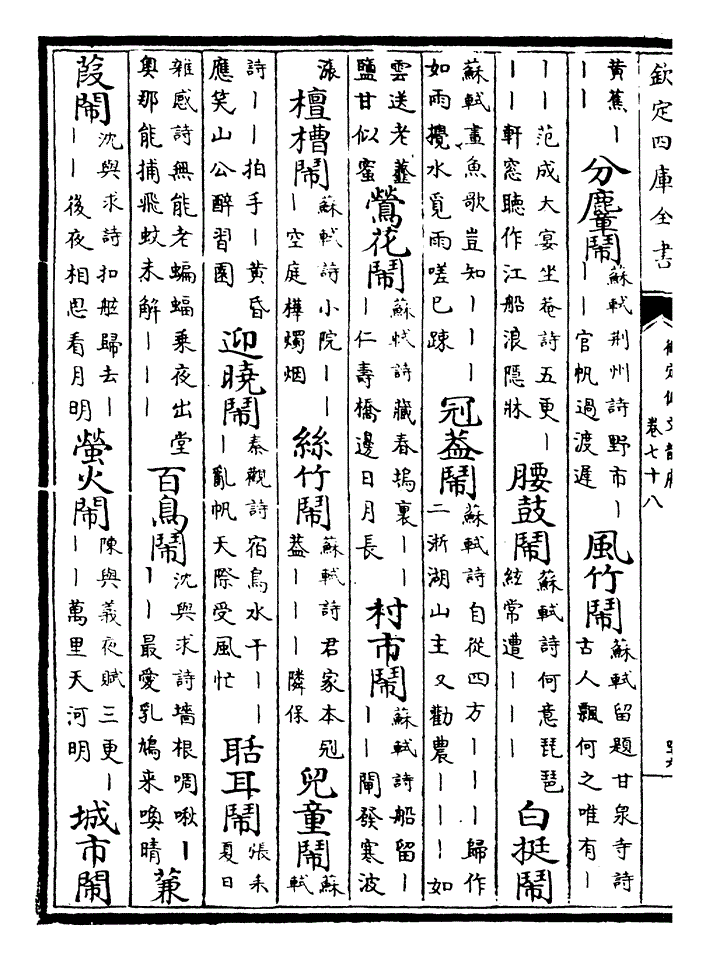 欽定四庫全書
卷七十八
黃蕉丨丨丨 分麞鬧 蘇軾荆州詩野市丨丨丨官帆過渡遲 風竹鬧 蘇軾留題甘泉寺詩古人飄何之唯有丨
丨丨范成大宴坐菴詩五更丨丨丨軒窓聽作江船浪隱牀 腰鼓鬧 蘇軾詩何意琵琶絃常遭丨丨丨 白挺鬧
蘇軾畫魚歌豈知丨丨丨丨如雨攪水覓雨嗟已踈 冠葢鬧 蘇軾詩自從四方丨丨丨歸作二浙湖山主又勸農丨丨丨如
雲送老虀鹽甘似蜜 鶯花鬧 蘇軾詩藏春塢裏丨丨丨仁壽橋邊日月長 村市鬧 蘇軾詩船留丨丨丨閘發寒波
漲 檀槽鬧 蘇軾詩小院丨丨丨空庭樺燭烟 絲竹鬧 蘇軾詩君家本冠葢丨丨丨隣保 兒童鬧 蘇軾
詩丨丨拍手丨黃昏應笑山公醉習園 迎曉鬧 秦觀詩宿鳥水干丨丨丨亂帆天際受風忙 聒耳鬧 張耒夏日
雜感詩無能老蝙蝠乘夜出堂奧那能捕飛蚊未解丨丨丨 百鳥鬧 沈與求詩墻根啁啾丨丨丨最愛乳鳩来喚晴 蒹
葭鬧 沈與求詩扣舷歸去丨丨丨後夜相思看月明 螢火鬧 陳與義夜賦三更丨丨丨萬里天河明 城市鬧